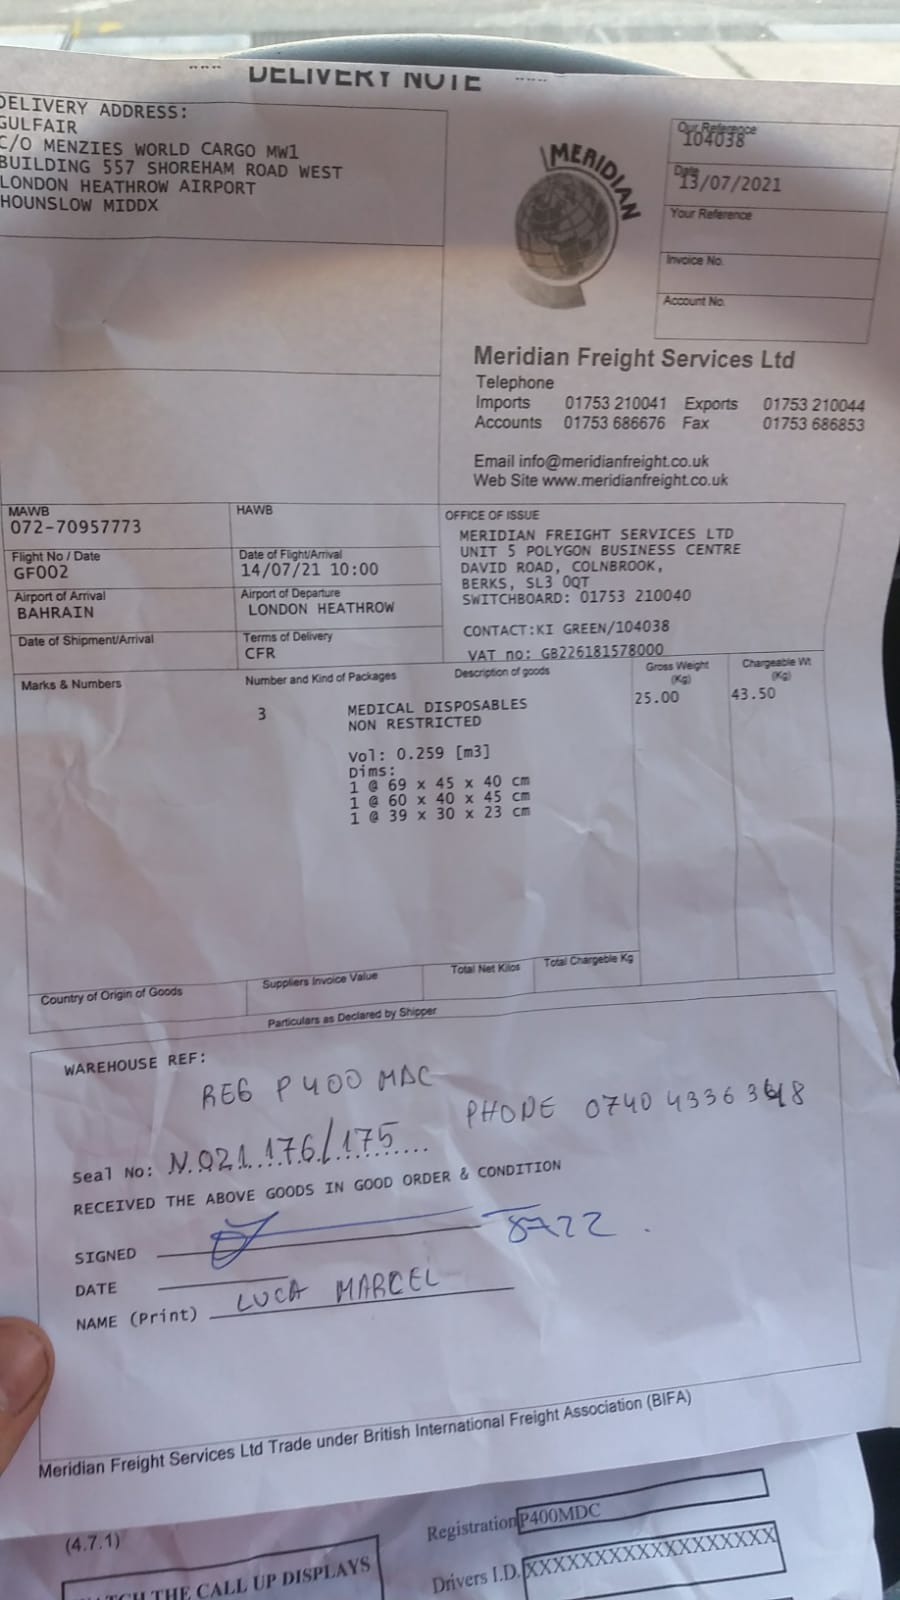 DELIVERY NOTE
DELIVERY ADDRESS:
GULFAIR
C/O MENZIES WORLD CARGO MW1
BUILDING 557 SHOREHAM ROAD WEST
LONDON HEATHROW AIRPORT
HOUNSLOW MIDDX
MERIDIAN
Our Reference
104038
Date
13/07/2021
Your Reference
Invoice No.
Account No.
Meridian Freight Services Ltd
Telephone
Imports 01753 210041 Exports 01753 210044
Accounts 01753 686676 Fax 01753 686853
Email info@meridianfreight.co.uk
Web Site www.meridianfreight.co.uk
MAWB
072-70957773
HAWB
Flight No / Date
GF002
Date of Flight/Arrival
14/07/21 10:00
Airport of Arrival
BAHRAIN
Airport of Departure
LONDON HEATHROW
Date of Shipment/Arrival
Terms of Delivery
CFR
OFFICE OF ISSUE
MERIDIAN FREIGHT SERVICES LTD
UNIT 5 POLYGON BUSINESS CENTRE
DAVID ROAD, COLNBROOK,
BERKS, SL3 0QT
SWITCHBOARD: 01753 210040
CONTACT:KI GREEN/104038
VAT no: GB226181578000
Marks & Numbers
Number and Kind of Packages
Description of goods
Gross Weight
(Kg)
Chargeable Wt
(Kg)
3
MEDICAL DISPOSABLES
NON RESTRICTED
25.00
43.50
Vol: 0.259 [m3]
Dims:
1 @ 69 x 45 x 40 cm
1 @ 60 x 40 x 45 cm
1 @ 39 x 30 x 23 cm
Country of Origin of Goods
Suppliers Invoice Value
Total Net Kilos
Total Chargeble Kg
Particulars as Declared by Shipper
WAREHOUSE REF:
REG P400 MDC
PHONE 0740 4336
Seal No: N.021.176/175
RECEIVED THE ABOVE GOODS IN GOOD ORDER & CONDITION
SIGNED
DATE
NAME (Print) LUCA MARCEL
Meridian Freight Services Ltd Trade under British International Freight Association (BIFA)
(4.7.1)
Registration P400MDC
THE CALL UP DISPLAYS
Drivers I.D. XXXXXXXXXXXXXXXXXX